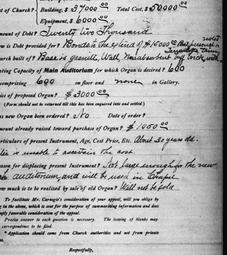 st of Church? Building, $37000.00 Total Cost, $50000.00
Equipment, $6000.00
Amount of Debt? Twenty two Thousand
ow is Debt provided for? Bonds
Church built of
ating Capacity of Main Auditorium for which Organ is desired? 600
comprising 600 on floor and none in Gallery.
ice of proposed Organ? $3000.00
(Form should not to returned till this has been inquired into and settled
new Organ been ordered? No Date of order?
mount already raised toward purchase of Organ? $1000.00
articulars of present Instrument, Age, Cost Price, Etc. About 30 years old.
is unable to ascertain the cost.
eason for displacing present Instrument? Not large enough for the new
auditorium, and will be used in
ow much is to be realized by sale of old Organ? Will not be sold.
To facilitate Mr. Carnegie's consideration of your appeal, will you oblige by
in the above, which is sent for the purpose of summarizing information and does
imply favorable consideration of the appeal.
Precise answer to each question is necessary. The leaving of blanks may
correspondence to be filed.
Application should come from Church authorities and not from private
Respectfully,